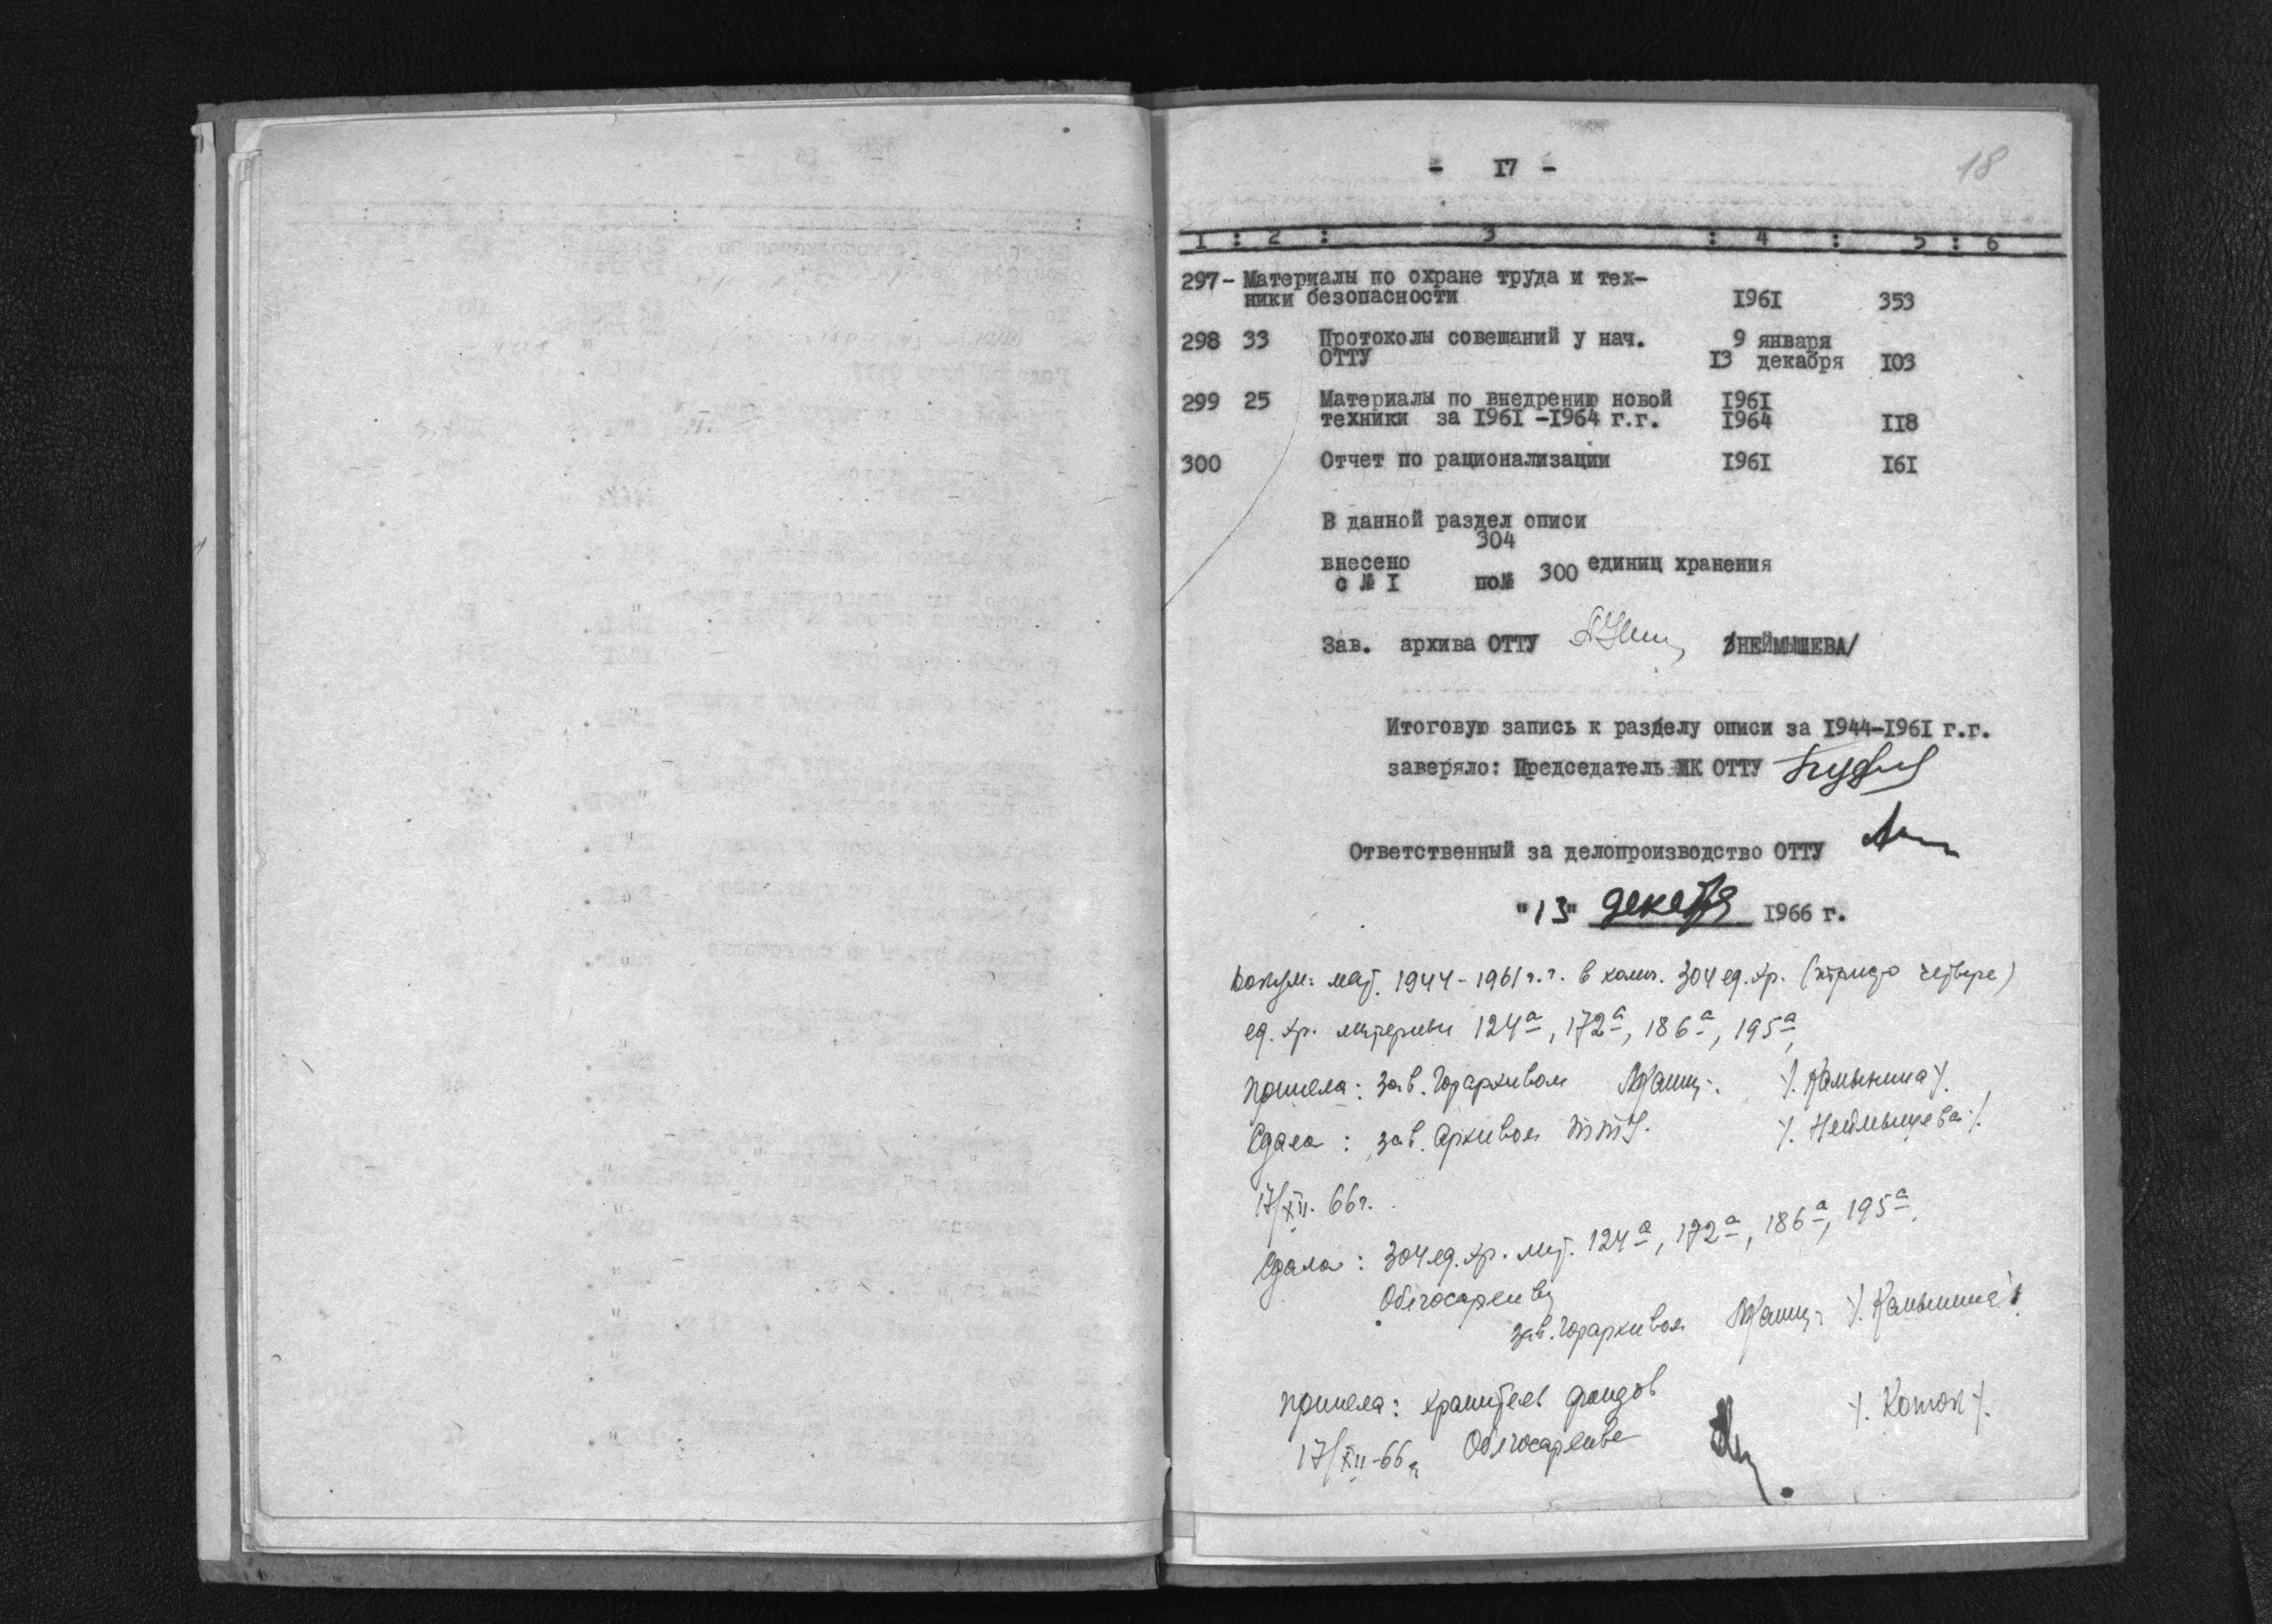 - 17 -
18
1 : 2 : 3 : 4 : 5 : 6
297- Материалы по охране труда и тех-
ники безопасности 1961 353
298 33 Протоколы совещаний у нач. 9 января
ОТТУ 13 декабря 103
299 25 Материалы по внедрению новой 1961
техники за 1961 -1964 г.г. 1964 118
300 Отчет по рационализации 1961 161
В данной раздел описи
304
внесено 300 единиц хранения
с № 1 по№
Зав. архива ОТТУ /НЕЙМЫШЕВА/
Итоговую запись к разделу описи за 1944-1961 г.г.
заверяло: Председатель ЖК ОТТУ
Ответственный за делопроизводство ОТТУ
"13" декабря 1966 г.
Докум: мат. 1944-1961 г.г. в колич. 304 ед. хр. (триста четыре)
ед. хр. литерные 124а, 172а, 186а, 195а,
Приняла: Зав. Горархивом /. Камынина /.
Сдала: зав. Архивом ТТУ. /. Неймышева /.
17/XII. 66 г.
Сдала: 304 ед. хр. лит. 124а, 172а, 186а, 195а.
Облгосархиву
зав. Горархивом /. Камынина /.
Приняла: хранитель фондов /. Коток /.
17/XII-66 г Облгосархива